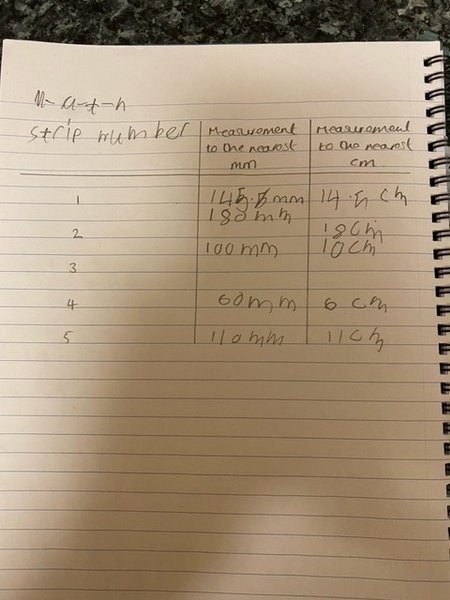 M-a-t-h
Strip number
Measurement to the nearest mm
Measurement to the nearest cm.
1 14 mm 14.5 cm
180 mm
2 18cm
100 mm 10cm
3
4 60mm 6 cm
5 110mm 11cm